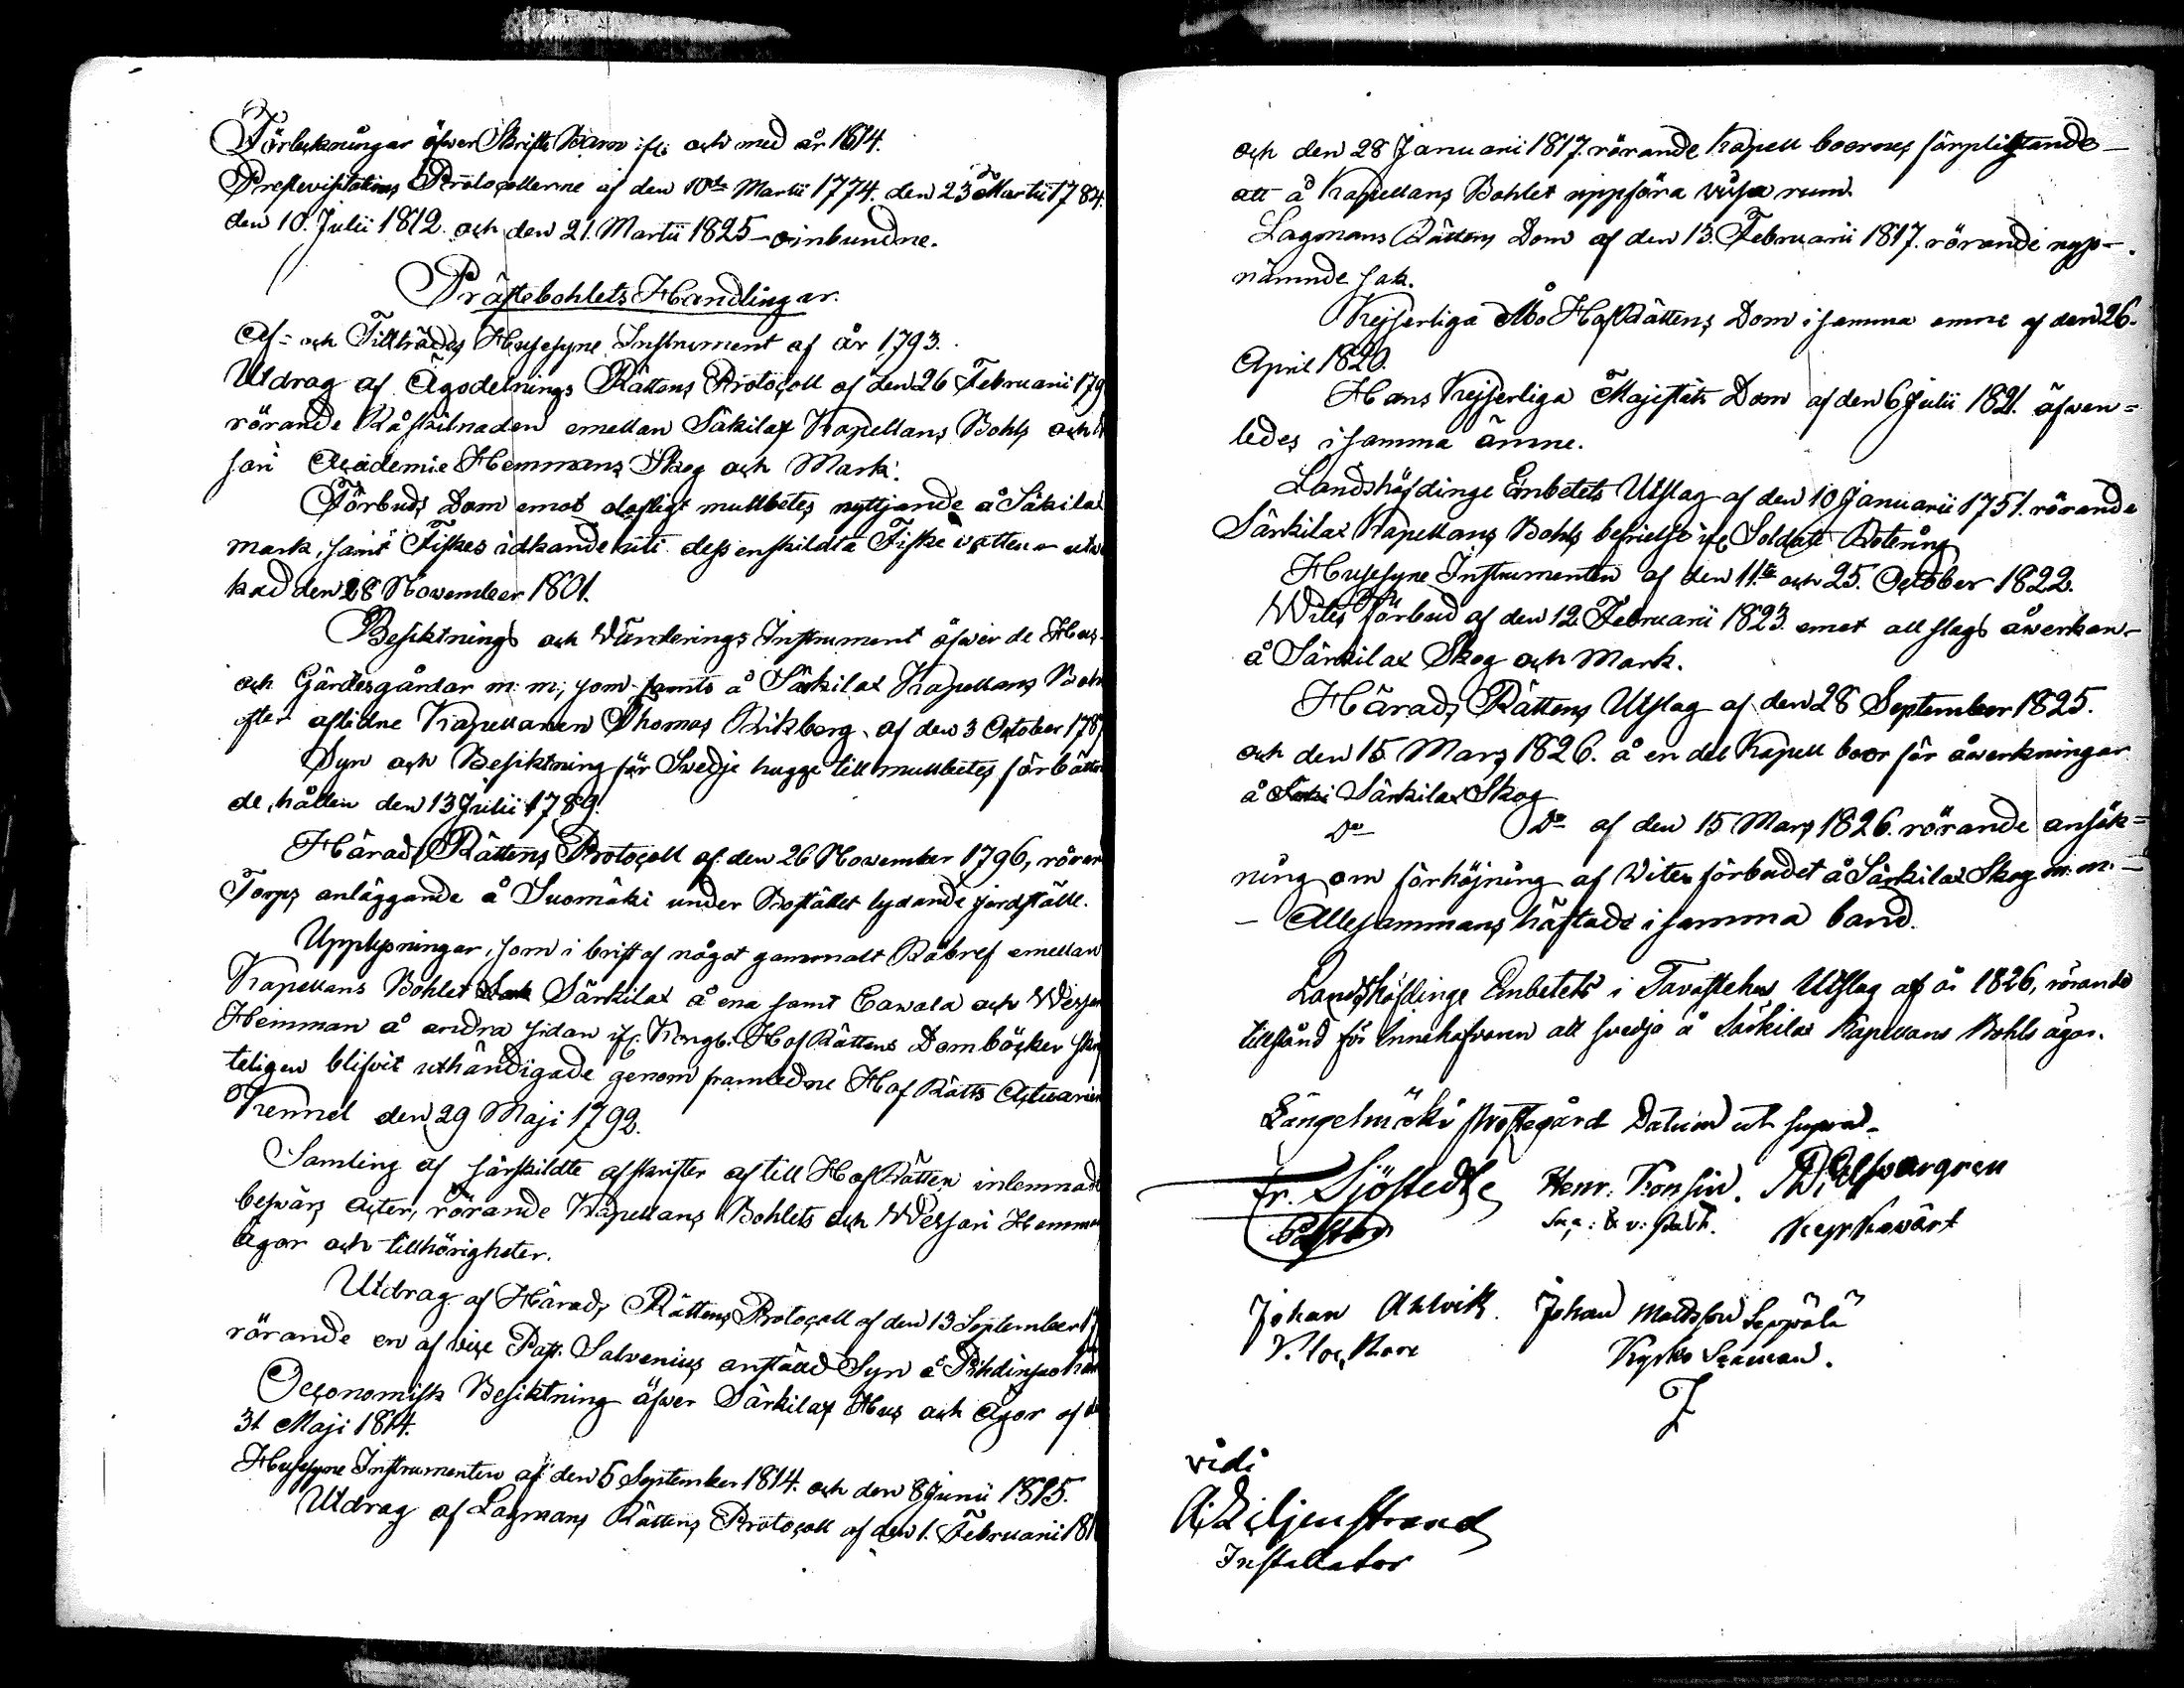 Förteckningar öfwer Skrifte Barn ifr: och med år 1814.
Prestevisitations Protocollerne af den 10de Martii 1774. den 23 do Martii 1784.
den 10. Julii 1812. och den 21. Martii 1825 – oinbundne.
Prästebohlets Handlingar.
Af- och Tillträdes Husesyne Instrument af år 1793.
Utdrag af Ägodelnings Rättens Protocoll af den 26 Februarii 179
rörande Råskilnaden emellan Säkilax Kapellans Bohls och
sari Academie Hemmans Skog och Mark.
Förbuds Dom emot olofligt mullbetes nyttjande å Säkilax
mark, samt Fiskes idkande uti dess enskildta Fiske vatten utw
kad den 28 November 1801.
Besiktnings och Wärderings Instrument öfwer de Hus
och Gärdesgårdar m: m:, som fants å Säkilax Kapellans Bohl
efter aflidne Kapellanen Thomas Rikberg af den 3 October 1787
Syn och Besiktning för Swedje hygge till mullbetes förbättran
de, hållen den 13 Julii 1789.
Härads Rättens Protocoll af den 26 November 1796, röran
Torps anläggande å Suomäki under Bostället lydande jordställe.
Upplysningar, som i brist af något gammalt Råbref emellan
Kapellans Bohlet Särkilax å ena samt Eawala och Wessari
Hemman å andra sidan ifr. Kongl. Hof Rättens Domböcker skrif
teligen blifvit uthändigade genom framledne Hof Rätts Actuarien
Krennel den 29 Maji 1792.
Samling af särskildte afskrifter af till Hof Rätten inlemnade
beswärs Acter, rörande Kapellans Bohlets och Wessari Hemmans
Ägor och tillhörigheter.
Utdrag af Härads Rättens Protocoll af den 13 September 17
rörande en af vice Past. Salvenius anstäld Syn å
Oeconomisk Besiktning öfver Särkilax Hus och Ägor af den
31 Maji 1814.
Husesyne Instrumenten af den 5 September 1814. och den 8 Junii 1815.
Utdrag af Lagmans Rättens Protocoll af den 1. Februarii 181
och den 28 Januarii 1817. rörande Kapell boernes förpligtande
att å Kapellans Bohlet uppföra wissa rum.
Lagmans Rättens Dom af den 13. Februarii 1817. rörande nyss-
nämnde sak.
Kejserliga Åbo Hof Rättens Dom i samma ämne af den 26.
April 1820.
Hans Kejserliga Majestäts Dom af den 6 Julii 1821. äfwen=
ledes i samma ämne.
Landshöfdinge Embetets Utslag af den 10 Januarii 1751. rörande
Särkilax Kapellans Bohls befrielse ifr. Soldate Rotering
Husesyne Instrumenten af den 11te och 25. October 1822.
Wites Förbud af den 12. Februarii 1823. emot all slags åwerkan
å Särkilax Skog och Mark.
Härads Rättens Utslag af den 28 September 1825.
och den 15 Mars 1826. å en del Kapell boer för åwerkningar
å Särkilax Skog
Do Do af den 15 Mars 1826. rörande ansök=
ning om förhöjning af Wites förbudet å Särkilax Skog m: m: –
– Allesammans häftade i samma band.
Landshöfdinge Embetets i Tavastehus Utslag af år 1826, rörande
tillstånd för Innehafvaren att svedja å Särkilax Kapellans Bohls ägor.
Längelmäki prostegård Datum ut supra.
Fr. Sjöstedt Henr: Konsin.
Pastor Sac: & v: past. Kyrkowärd
Johan Ahlvik. Johan Mattsson Seppälä
Klockare Kyrko Sexman.
vidi
A. Liljenstrand
Installator